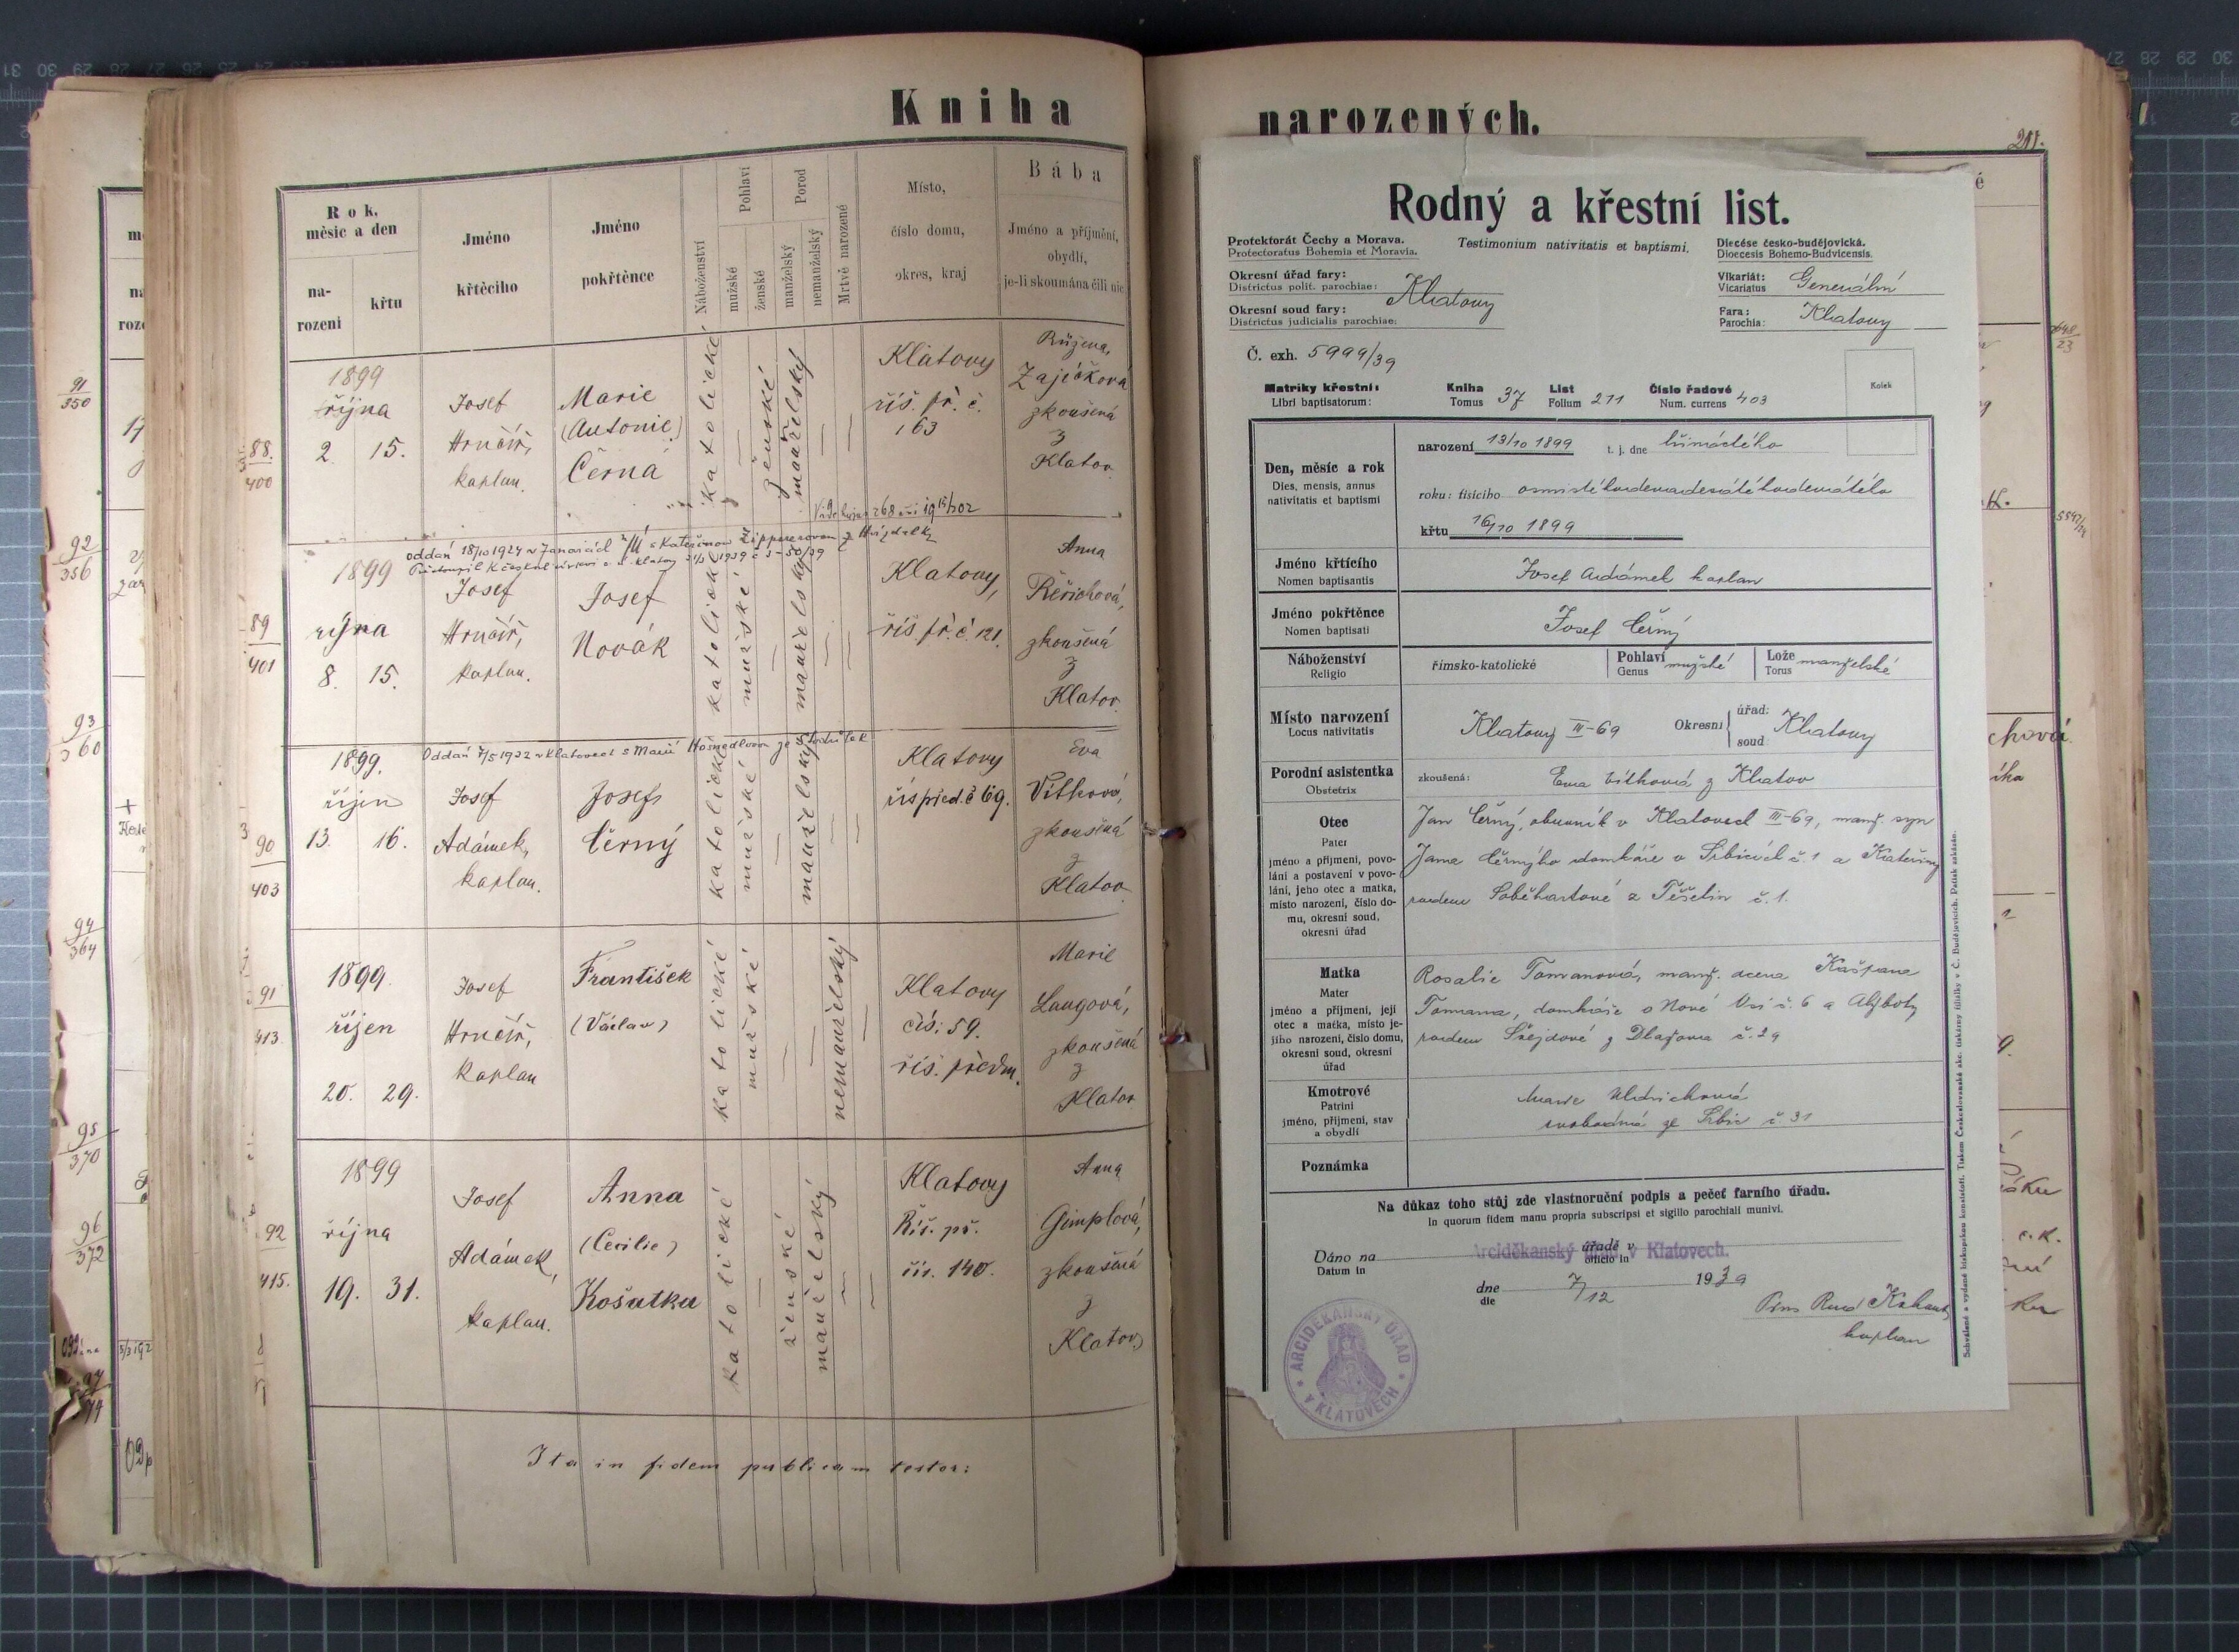 Kniha
narozených.
Rok, měsíc a den
narození
křtu
Jméno křtěcího
Jméno pokřtěnce
Náboženství
Pohlaví
mužské
ženské
Porod
manželský
nemanželský
Mrtvě narozené
Místo,
číslo domu,
okres, kraj
Bába
Jméno a příjmení,
obydlí,
je-li skoumána čili nic
91
350
92
356
93
360
94
364
95
370
96
372
88.
400
1899
října
2. 15.
Josef
Hrnčíř,
kaplan.
Marie
(Antonie)
Černá
katolické
ženské
manželský
Klatovy
říš. př. č.
163
Růžena
Zajíčková
zkoušená
z
Klatov
89
401
oddán 18/10 1924 v Janovicích
1899
října
8. 15.
Josef
Hrnčíř,
kaplan.
Josef
Novák
katolické
mužské
manželský
Klatovy,
říš. př. č 121.
Anna
Řeřichová,
zkoušená
z
Klatov.
90
403
Oddán 7/5 1922 v Klatovech s Marií
1899.
říjen
13. 16.
Josef
Adámek,
kaplan.
Josef
Černý
katolické
mužské
manželský
Klatovy
říš před. č 69.
Eva
Vítková,
zkoušená
z
Klatov.
91
413
1899.
říjen
20. 29.
Josef
Hrnčíř,
kaplan
František
(Václav)
katolické
mužské
nemanželský
Klatovy
čís. 59.
říš. předm.
Marie
Langová,
zkoušená
z
Klatov
92
415.
1899
října
19. 31.
Josef
Adámek,
kaplan.
Anna
(Cecilie)
Košatka
katolické
ženské
manželský
Klatovy
Říš. př.
čís. 140.
Anna
Gimplová,
zkoušená
z
Klatov
Ita in fidem publicam testor:
211.
Rodný a křestní list.
Protektorát Čechy a Morava.
Protectoratus Bohemia et Moravia.
Testimonium nativitatis et baptismi.
Diecése česko-budějovická.
Dioecesis Bohemo-Budvicensis.
Okresní úřad fary:
Districtus polit. parochiae:
Okresní soud fary:
Districtus judicialis parochiae:
Klatovy
Vikariát:
Vicariatus
Generální
Fara:
Parochia:
Klatovy
Č. exh. 5999/39
Kolek
Matriky křestní:
Libri baptisatorum:
Kniha
Tomus 37
List
Folium 211
Číslo řadové
Num. currens 403
Den, měsíc a rok
Dies, mensis, annus
nativitatis et baptismi
narození 13/10 1899 t. j. dne třináctého
roku: tisícího osmistéhodevadesátéhodevátého
křtu 16/10 1899
Jméno křtícího
Nomen baptisantis
Josef Adámek kaplan
Jméno pokřtěnce
Nomen baptisati
Josef Černý
Náboženství
Religio
římsko-katolické
Pohlaví
Genus mužské
Lože
Torus manželské
Místo narození
Locus nativitatis
Klatovy III-69
Okresní
úřad:
soud:
Klatovy
Porodní asistentka
Obstetrix
zkoušená: Eva Vítková z Klatov
Otec
Pater
jméno a příjmení, povo-
lání a postavení v povo-
lání, jeho otec a matka,
místo narození, číslo do-
mu, okresní soud,
okresní úřad
Jan Černý, obuvník v Klatovech III-69, manž. syn
Jana Černýho domkáře v Srbicích č. 1 a Kateřiny
rodem Soběhartové z Těšetin č. 1.
Matka
Mater
jméno a příjmení, její
otec a matka, místo je-
jího narození, číslo domu,
okresní soud, okresní
úřad
Rosalie Tomanová, manž. dcera Kašpara
Tomana, domkáře v Nové Vsi č. 6 a Alžběty
rodem Šnejdové z Dlažova č. 29
Kmotrové
Patrini
jméno, příjmení, stav
a obydlí
Marie Uldrichová
svobodná ze Srbic č. 31
Poznámka
Na důkaz toho stůj zde vlastnoruční podpis a pečeť farního úřadu.
In quorum fidem manu propria subscripsi et sigillo parochiali munivi.
Dáno na
Datum in
úřadě v
officio in
Arciděkanský úřad v Klatovech.
dne
die
7/12
1939
kaplan
ARCIDĚKANSKÝ ÚŘAD
V KLATOVECH